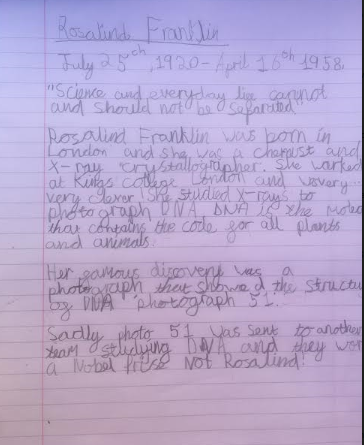 Rosalind Franklin
July 25th, 1920 - April 16th 1958.
"Science and everyday life cannot
and should not be separated"
Rosalind Franklin was born in
London and she was a chemist and
X-ray crystallographer. She worked
at Kings College London and
very clever! She studied X-rays to
photograph DNA. DNA is the
that contains the code for all plants
and animals.
Her famous discovery was a
photograph that showed the
of DNA "photograph 51".
Sadly photo 51 was sent to another
team studying DNA and they
a Nobel Prize Not Rosalind!